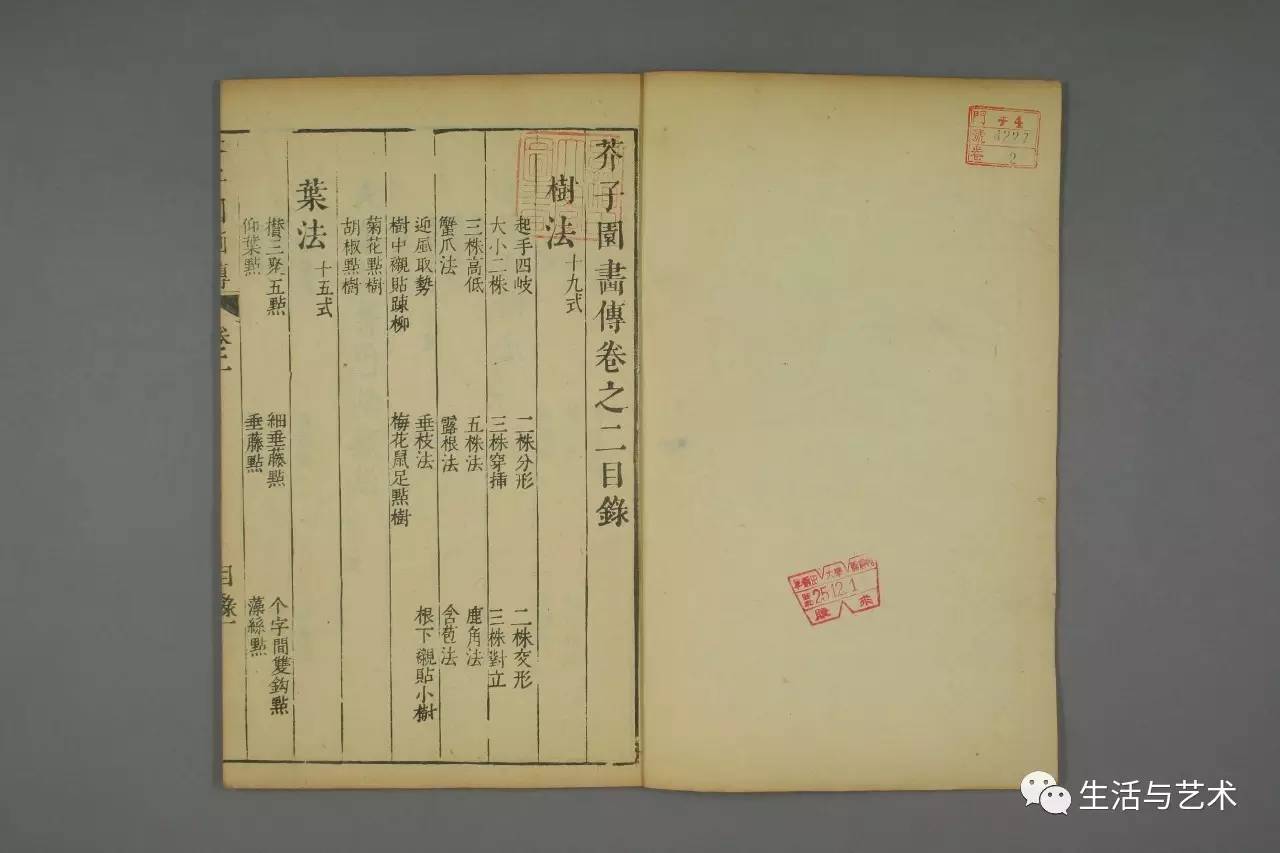 芥子園畫傳卷之二目錄
樹法 十九式
起手四岐 二株分形 二株交形
大小二株 三株穿插 三株對立
三株高低 五株法 鹿角法
蟹爪法 露根法 含苞法
迎風取勢 垂枝法 根下襯貼小樹
樹中襯貼踈柳 梅花鼠足點樹
菊花點樹
胡椒點樹
葉法 十五式
攢三聚五點 細垂藤點 个字間雙鈎點
仰葉點 垂藤點 藻絲點
卷之二
目錄一
門 子4
號 4227
卷 2
早稻田大學圖書
25.12.1
購求
生活与艺术